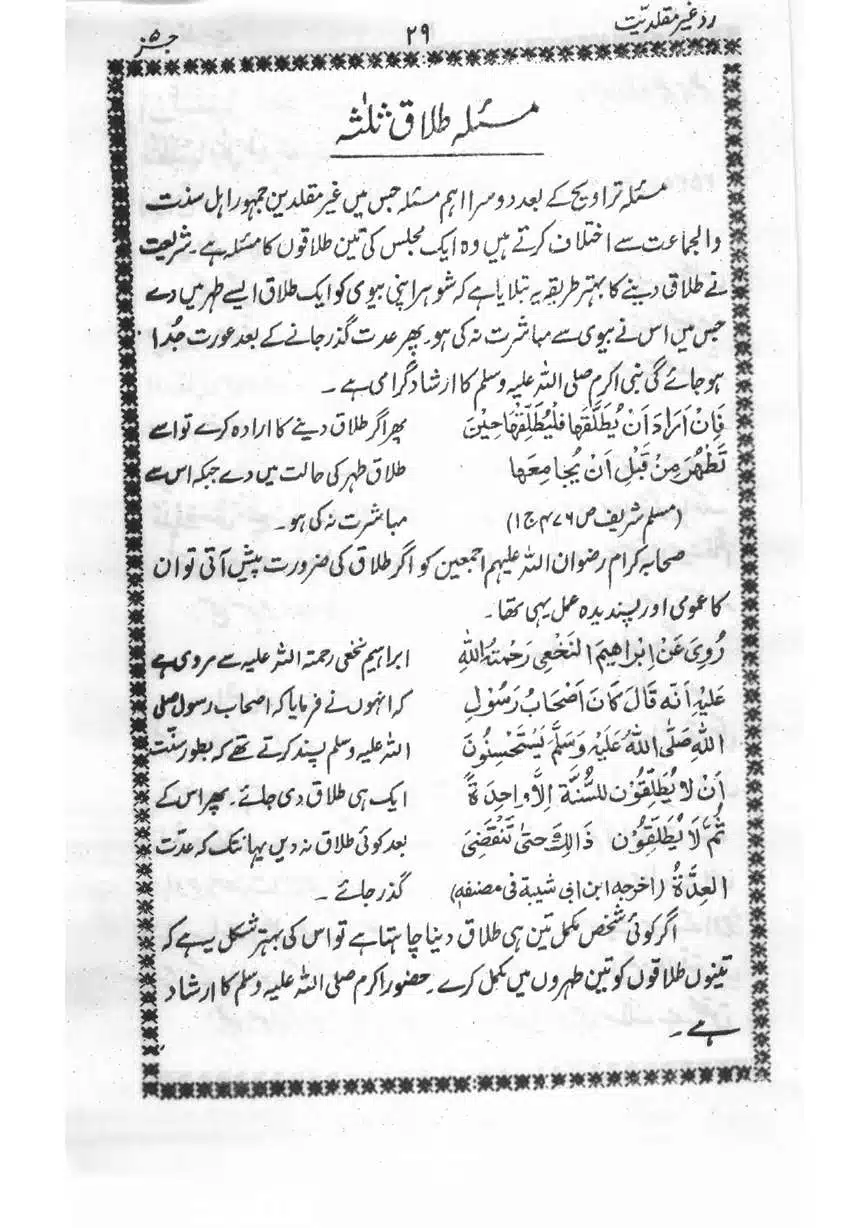 رد غیر مقلدیت ۲۹ جز ۵
مسئلہ طلاق ثلٰثہ
مسئلہ تراویح کے بعد دوسرا اہم مسئلہ جس میں غیر مقلدین جمہور اہل سنت
والجماعت سے اختلاف کرتے ہیں وہ ایک مجلس کی تین طلاقوں کا مسئلہ ہے۔ شریعت
نے طلاق دینے کا بہتر طریقہ یہ بتلایا ہے کہ شوہر اپنی بیوی کو ایک طلاق ایسے طہر میں دے
جس میں اس نے بیوی سے مباشرت نہ کی ہو۔ پھر عدت گذر جانے کے بعد عورت جُدا
ہو جائے گی نبی اکرم صلی اللہ علیہ وسلم کا ارشاد گرامی ہے۔
فَاِنْ اَرَادَ اَنْ یُّطَلِّقَھَا فَلْیُطَلِّقْھَا حِیْنَ پھر اگر طلاق دینے کا ارادہ کرے تو اسے
تَطْھُرَ مِنْ قَبْلِ اَنْ یُّجَامِعَھَا طلاق طہر کی حالت میں دے جبکہ اس سے
(مسلم شریف ص ۴۷۶ ج ۱) مباشرت نہ کی ہو۔
صحابہ کرام رضوان اللہ علیہم اجمعین کو اگر طلاق کی ضرورت پیش آتی تو ان
کا عمومی اور پسندیدہ عمل یہی تھا۔
رُوِیَ عَنْ اِبْرَاھِیْمَ النَّخْعِی رَحْمَتُہُ اللّٰہِ ابراہیم نخعی رحمتہ اللہ علیہ سے مروی ہے
عَلَیْہِ اَنَّہ قَالَ کَانَ اَصْحَابُ رَسُوْلِ کہ انہوں نے فرمایا کہ اصحاب رسول صلی
اللّٰہِ صَلَّی اللّٰہُ عَلَیْہِ وَسَلَّمَ یَسْتَحْسِنُوْنَ اللہ علیہ وسلم پسند کرتے تھے کہ بطور سنّت
اَنْ لَا یُطَلِّقُوْنَ لِلسُّنَّۃِ اِلَّا وَاحِدَۃً ایک ہی طلاق دی جائے۔ پھر اس کے
ثُمَّ لَا یُطَلِّقُوْنَ ذَالِکَ حَتّٰی تَنْقَضِیَ بعد کوئی طلاق نہ دیں یہانتک کہ عدّت
الْعِدَّۃُ (اخرجہ ابن ابی شیبۃ فی مصنفہ) گذر جائے۔
اگر کوئی شخص مکمل تین ہی طلاق دینا چاہتا ہے تو اس کی بہتر شکل یہ ہے کہ
تینوں طلاقوں کو تین طہروں میں مکمل کرے۔ حضور اکرم صلی اللہ علیہ وسلم کا ارشاد
ہے۔